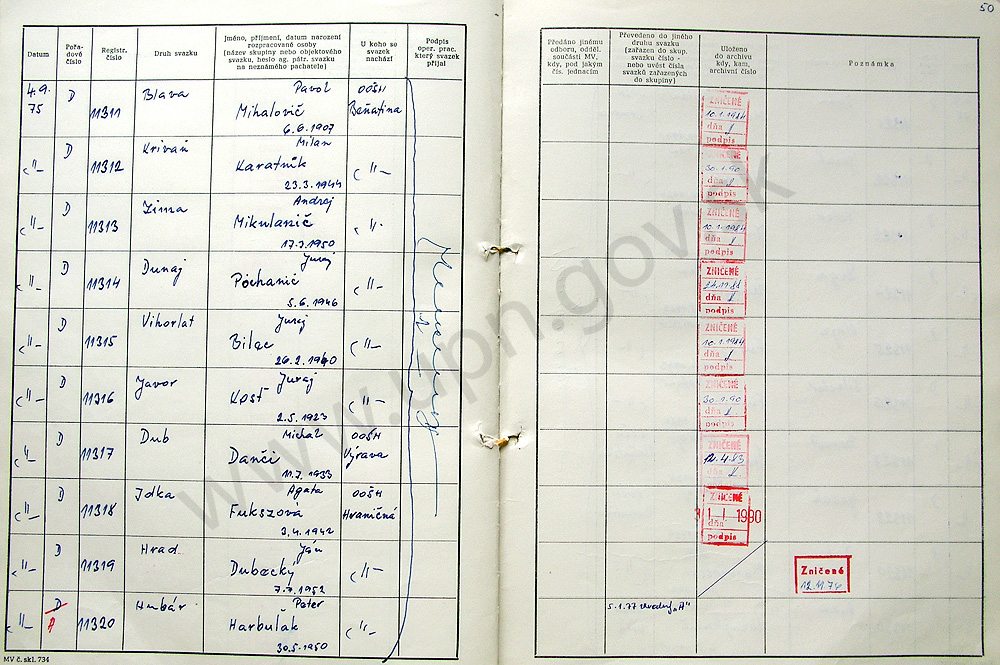 50
Datum
Pořadové číslo
Registr. číslo
Druh svazku
Jméno, příjmení, datum narození
rozpracované osoby
(název skupiny nebo objektového
svazku, heslo ag. pátr. svazku
na neznámého pachatele)
U koho se
svazek
nachází
Podpis
oper. prac.
který svazek
přijal
Předáno jinému
odboru, odděl.
součásti MV,
kdy, pod jakým
čís. jednacím
Převedeno do jiného
druhu svazku
(zařazen do skup.
svazku číslo -
nebo uvést čísla
svazků zařazených
do skupiny)
Uloženo
do archivu
kdy, kam,
archivní číslo
Poznámka
4.9.
75
D
11311
Blava
Pavol
Mihalovič
6.6.1907
OOŠH
Beňatina
ZNIČENÉ
10.1.1984
dňa
podpis
-"-
D
11312
Kriváň
Milan
Karatník
23.3.1944
-"-
ZNIČENÉ
30.1.90
dňa
podpis
-"-
D
11313
Zima
Andrej
Mikulanič
17.7.1950
-"-
ZNIČENÉ
10.1.1984
dňa
podpis
-"-
D
11314
Dunaj
Juraj
Póchanič
5.6.1946
-"-
ZNIČENÉ
dňa
podpis
-"-
D
11315
Vihorlat
Juraj
Bilec
26.2.1940
-"-
ZNIČENÉ
10.1.1984
dňa
podpis
-"-
D
11316
Javor
Juraj
Kosť
2.5.1923
-"-
ZNIČENÉ
30.1.90
dňa
podpis
-"-
D
11317
Dub
Michal
Danči
11.7.1933
OOŠH
Výrava
ZNIČENÉ
12.4.83
dňa
podpis
-"-
D
11318
Idka
Agata
Fukszova
3.4.1942
OOŠH
Hraničná
ZNIČENÉ
31.1.1990
dňa
podpis
-"-
D
11319
Hrad
Ján
Dubecký
7.7.1952
-"-
Zničené
-"-
D
A
11320
Hubár
Peter
Harbuľak
30.5.1950
-"-
5.1.77 "A"
MV č. skl. 734
www.upn.gov.sk